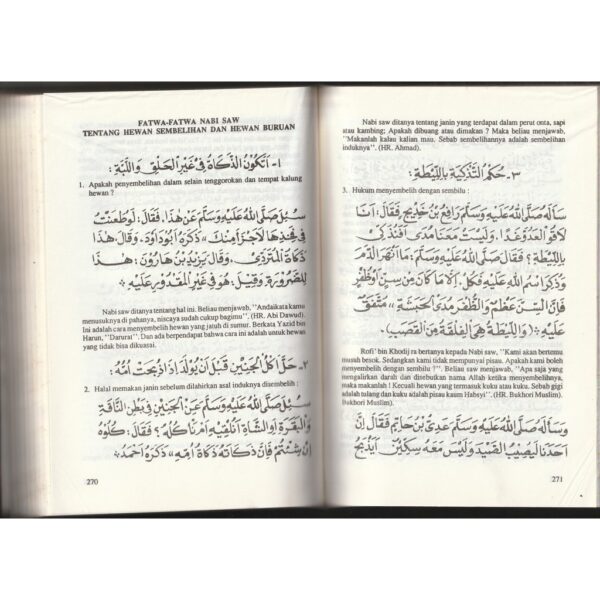 FATWA-FATWA NABI SAW
TENTANG HEWAN SEMBELIHAN DAN HEWAN BURUAN
١- اَتَكُوْنُ الذَّكَاةُ فِيْ غَيْرِ الْحَلْقِ وَاللَّبَّةِ :
1. Apakah penyembelihan dalam selain tenggorokan dan tempat kalung
hewan ?
سُئِلَ صَلَّى اللهُ عَلَيْهِ وَسَلَّمَ عَنْ هٰذَا. فَقَالَ : لَوْ طَعَنْتَ
فِيْ فَخِذِهَا لَأَجْزَأَ مِنْكَ » ذَكَرَهُ اَبُوْ دَاوُدَ. وَقَالَ هٰذَا
ذَكَاةُ الْمُتَرَدِّيْ. وَقَالَ يَزِيْدُ بْنُ هَارُوْنَ : هٰذَا
لِلضَّرُوْرَةِ وَقِيْلَ : هُوَ فِيْ غَيْرِ الْمَقْدُوْرِ عَلَيْهِ
Nabi saw ditanya tentang hal ini. Beliau menjawab, "Andaikata kamu
menusuknya di pahanya, niscaya sudah cukup bagimu". (HR. Abi Dawud).
Ini adalah cara menyembelih hewan yang jatuh di sumur. Berkata Yazid bin
Harun, "Darurat". Dan ada berpendapat bahwa cara ini adalah untuk hewan
yang tidak bisa dikuasai.
٢- حَلَّ اَكْلُ الْجَنِيْنِ قَبْلَ اَنْ يُوْلَدَ اِذَا ذُبِحَتْ اُمُّهُ :
2. Halal memakan janin sebelum dilahirkan asal induknya disembelih :
سُئِلَ صَلَّى اللهُ عَلَيْهِ وَسَلَّمَ عَنِ الْجَنِيْنِ فِيْ بَطْنِ النَّاقَةِ
وَالْبَقَرَةِ اَوِ الشَّاةِ اَنُلْقِيْهِ اَمْ نَأْكُلُهُ ؟ فَقَالَ : كُلُوْهُ
اِنْ شِئْتُمْ فَاِنَّ ذَكَاتَهُ ذَكَاةُ اُمِّهِ » ذَكَرَهُ اَحْمَدُ
270
Nabi saw ditanya tentang janin yang terdapat dalam perut onta, sapi
atau kambing; Apakah dibuang atau dimakan ? Maka beliau menjawab,
"Makanlah kalau kalian mau. Sebab sembelihannya adalah sembelihan
induknya". (HR. Ahmad).
٣- حُكْمُ التَّذْكِيَةِ بِاللِّيْطَةِ :
3. Hukum menyembelih dengan sembilu :
سَأَلَهُ صَلَّى اللهُ عَلَيْهِ وَسَلَّمَ رَافِعُ بْنُ خَدِيْجٍ فَقَالَ : اَنَا
لَاقُو الْعَدُوِّ غَدًا. وَلَيْسَتْ مَعَنَا مُدًى اَفَنُذَكِّيْ
بِاللِّيْطَةِ ؟ فَقَالَ صَلَّى اللهُ عَلَيْهِ وَسَلَّمَ : مَا اَنْهَرَ الدَّمَ
وَذُكِرَ اسْمُ اللهِ عَلَيْهِ فَكُلْ. اِلَّا مَا كَانَ مِنْ سِنٍّ اَوْ ظُفْرٍ
فَاِنَّ السِّنَّ عَظْمٌ وَالظُّفْرَ مُدَى الْحَبَشَةِ » مُتَّفَقٌ
عَلَيْهِ (وَاللِّيْطَةُ هِيَ الْفِلْقَةُ مِنَ الْقَصَبِ).
Rofi' bin Khodij ra bertanya kepada Nabi saw, "Kami akan bertemu
musuh besok. Sedangkan kami tidak mempunyai pisau. Apakah kami boleh
menyembelih dengan sembilu ?". Beliau saw menjawab, "Apa saja yang
mengalirkan darah dan disebutkan nama Allah ketika menyembelihnya,
maka makanlah ! Kecuali hewan yang termasuk kuku atau kuku. Sebab gigi
adalah tulang dan kuku adalah pisau kaum Habsyi". (HR. Bukhori Muslim).
Bukhori Muslim).
وَسَأَلَهُ صَلَّى اللهُ عَلَيْهِ وَسَلَّمَ عَدِيُّ بْنُ حَاتِمٍ فَقَالَ اِنَّ
اَحَدَنَا لَيُصِيْبُ الصَّيْدَ وَلَيْسَ مَعَهُ سِكِّيْنٌ اَيَذْبَحُ
271